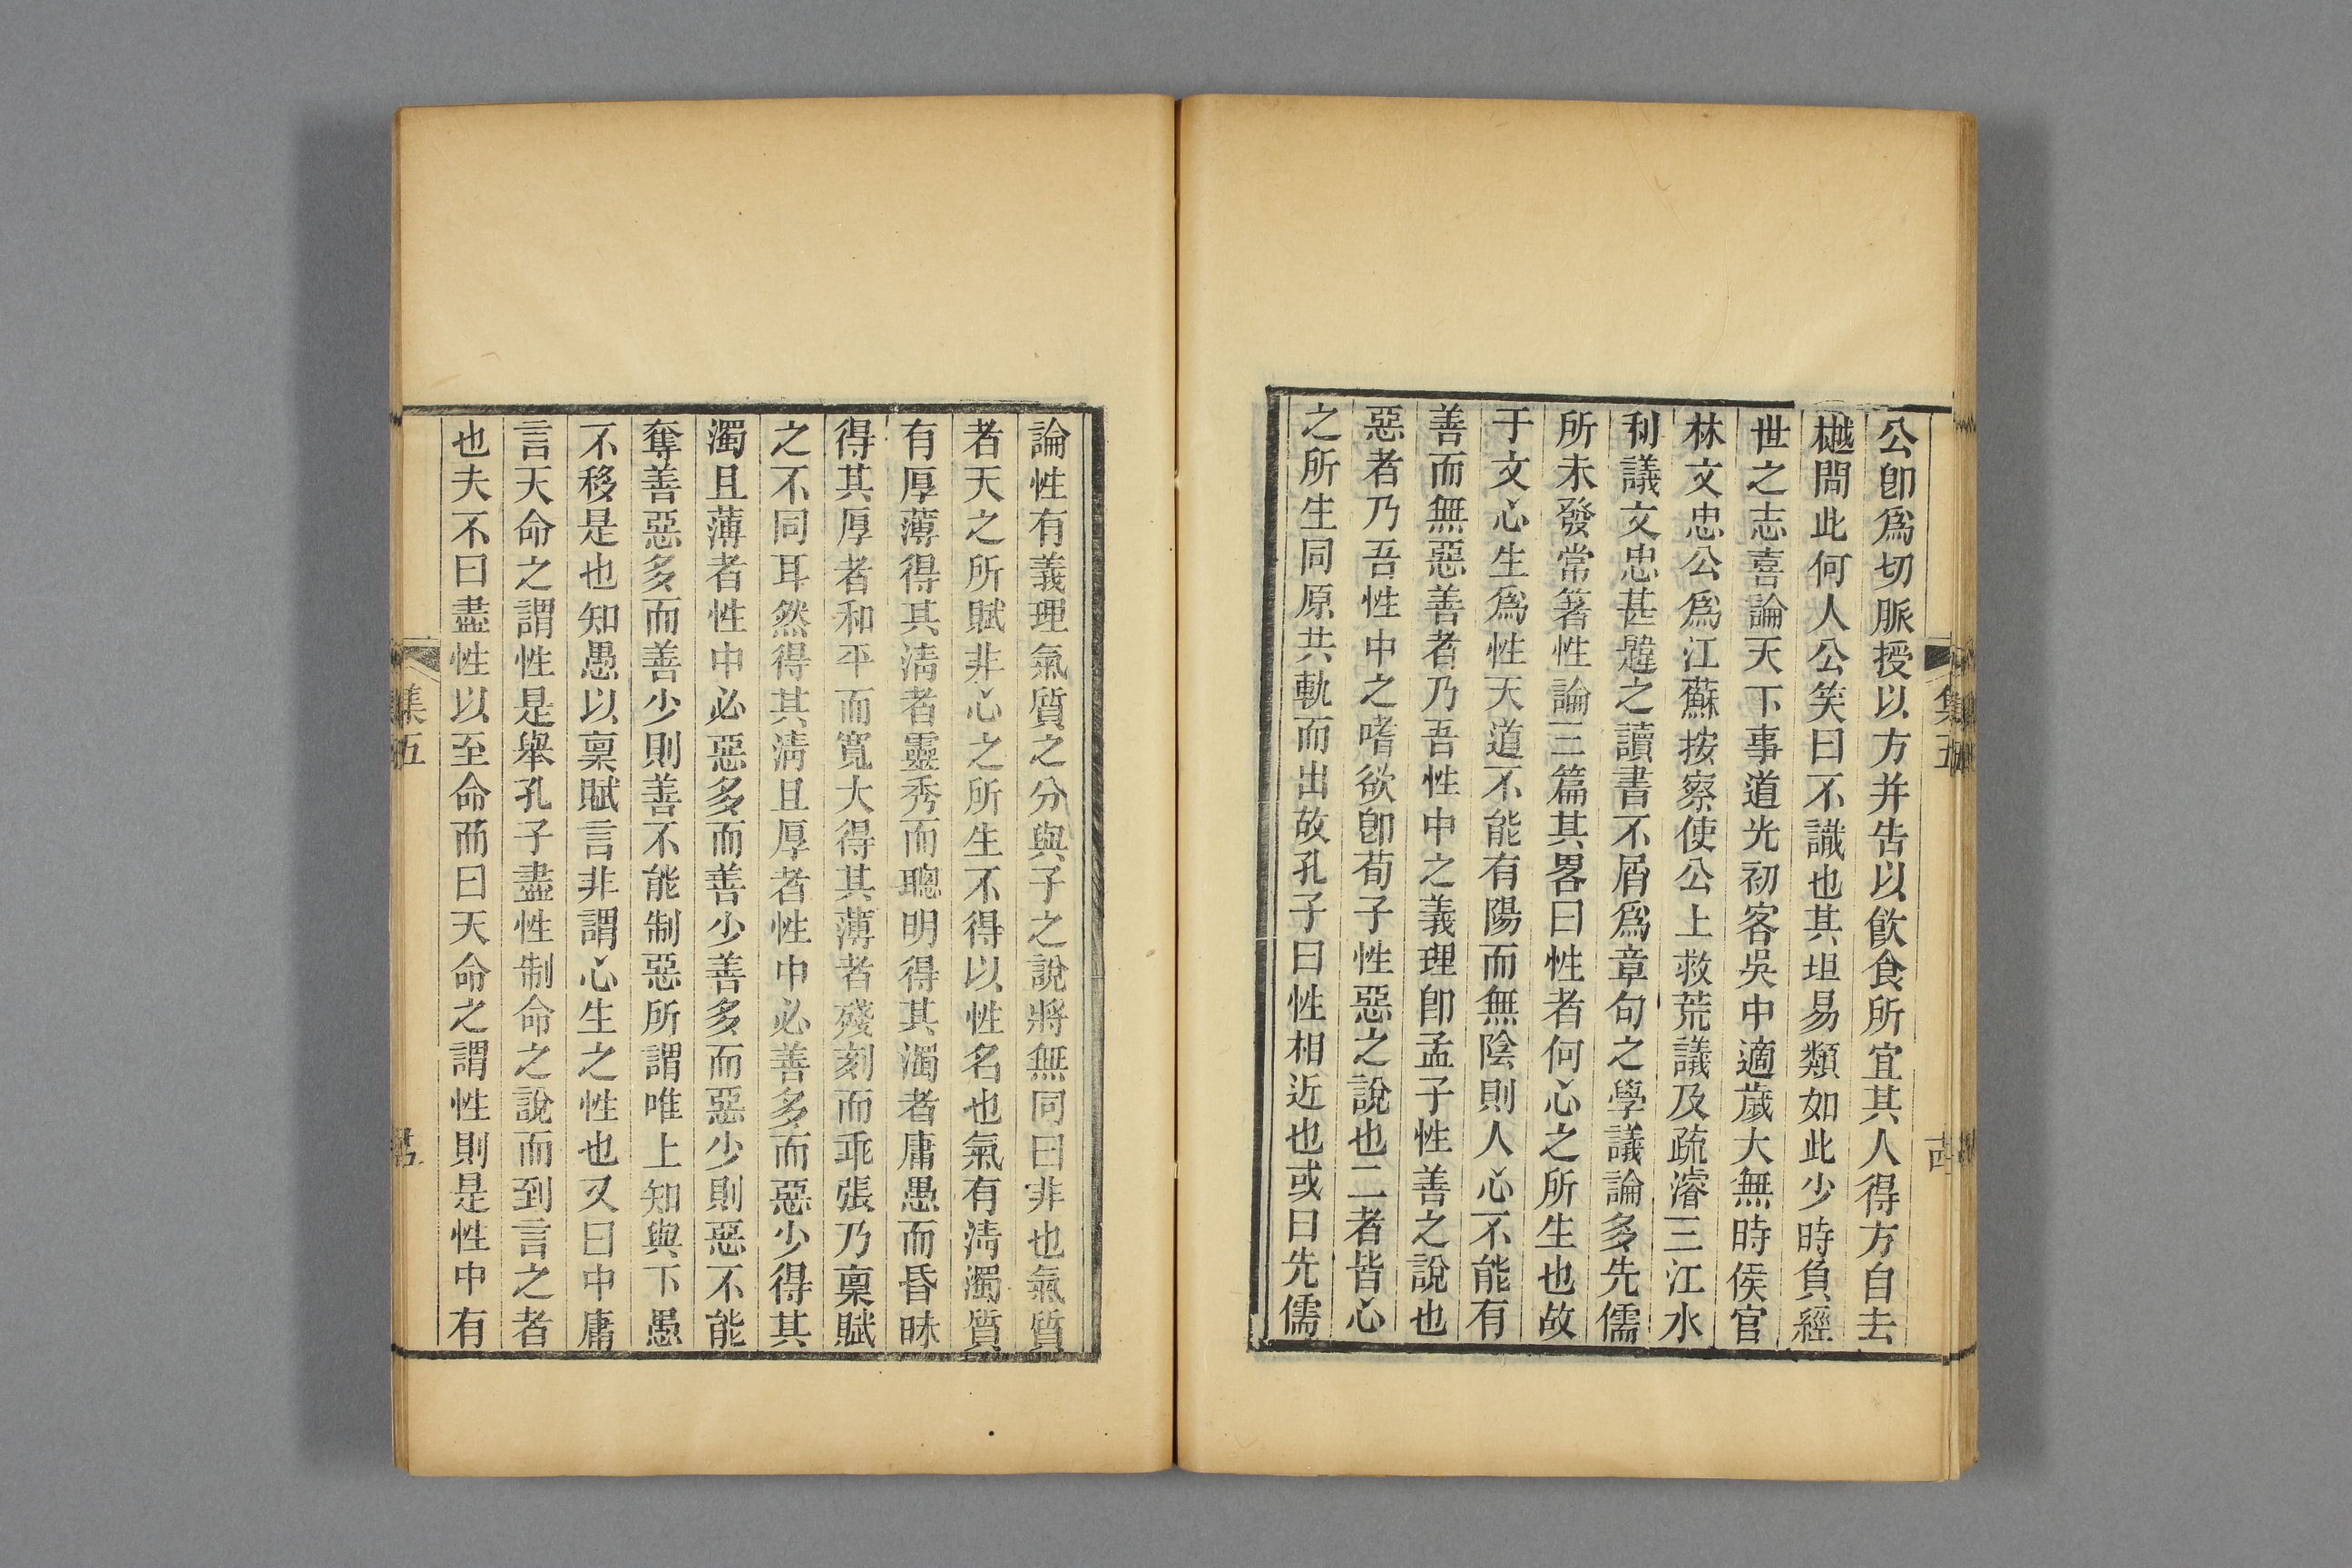 公卽爲切脈授以方并告以飮食所宜其人得方自去
樾問此何人公笑曰不識也其坦易類如此少時負經
世之志喜論天下事道光初客吳中適歲大無時侯官
林文忠公爲江蘇按察使公上救荒議及疏濬三江水
利議文忠甚韙之讀書不屑爲章句之學議論多先儒
所未發常箸性論三篇其畧曰性者何心之所生也故
于文心生爲性天道不能有陽而無陰則人心不能有
善而無惡善者乃吾性中之義理卽孟子性善之說也
惡者乃吾性中之嗜欲卽荀子性惡之說也二者皆心
之所生同原共軌而出故孔子曰性相近也或曰先儒
集五
論性有義理氣質之分與子之說將無同曰非也氣質
者天之所賦非心之所生不得以性名也氣有淸濁質
有厚薄得其淸者靈秀而聰明得其濁者庸愚而昏昧
得其厚者和平而寬大得其薄者殘刻而乖張乃稟賦
之不同耳然得其淸且厚者性中必善多而惡少得其
濁且薄者性中必惡多而善少善多而惡少則惡不能
奪善惡多而善少則善不能制惡所謂唯上知與下愚
不移是也知愚以稟賦言非謂心生之性也又曰中庸
言天命之謂性是舉孔子盡性制命之說而到言之者
也夫不曰盡性以至命而曰天命之謂性則是性中有
集五